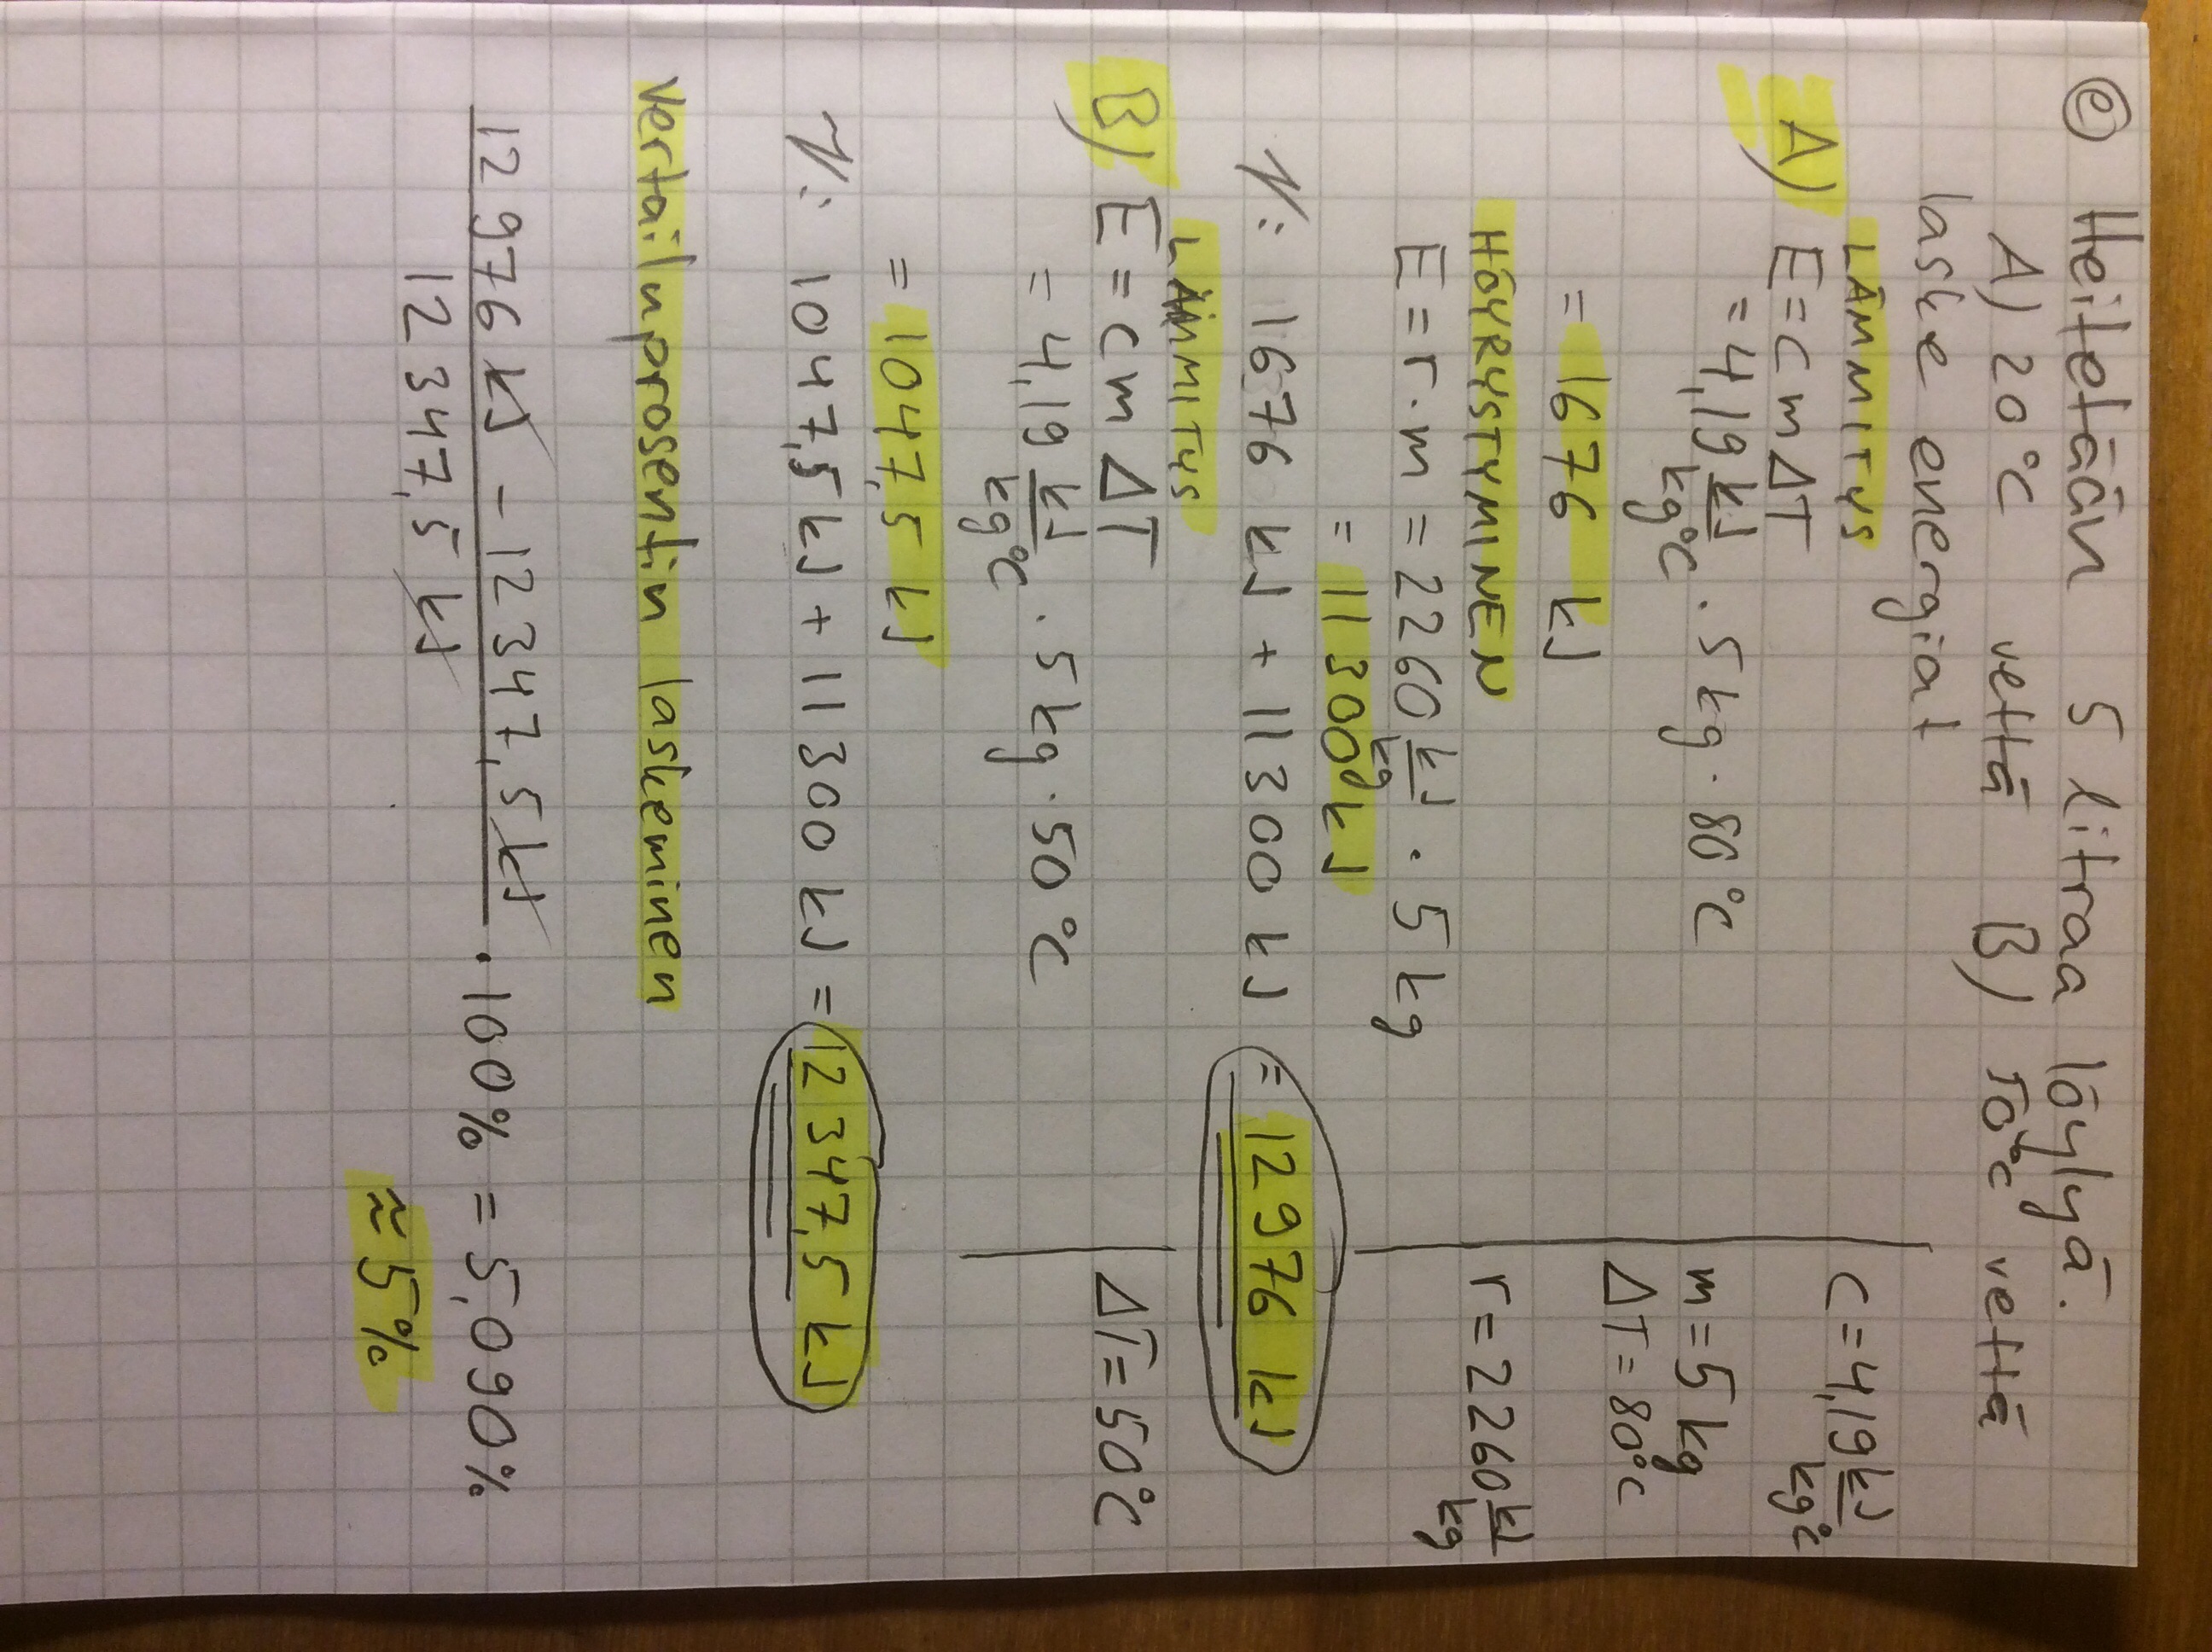 e) Heitetään 5 litraa löylyä.
A) 20°C vettä B) 50°C vettä
laske energiat
LÄMMITYS
A) E = c m ΔT
= 4,19 kJ/kg°C · 5 kg · 80°C
= 1676 kJ
c = 4,19 kJ/kg°C
m = 5 kg
ΔT = 80°C
HÖYRYSTYMINEN
E = r · m = 2260 kJ/kg · 5 kg
= 11300 kJ
r = 2260 kJ/kg
V: 1676 kJ + 11300 kJ = 12976 kJ
LÄMMITYS
B) E = c m ΔT
ΔT = 50°C
= 4,19 kJ/kg°C · 5 kg · 50°C
= 1047,5 kJ
V: 1047,5 kJ + 11300 kJ = 12347,5 kJ
Vertailuprosentin laskeminen
12976 kJ - 12347,5 kJ / 12347,5 kJ · 100% = 5,090%
≈ 5%